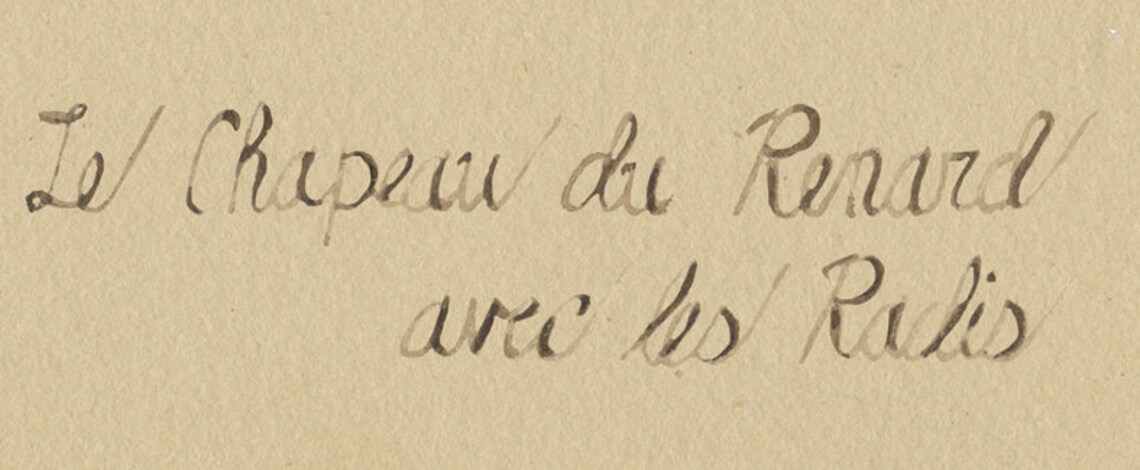 Le Chapeau du Renard
avec les Radis